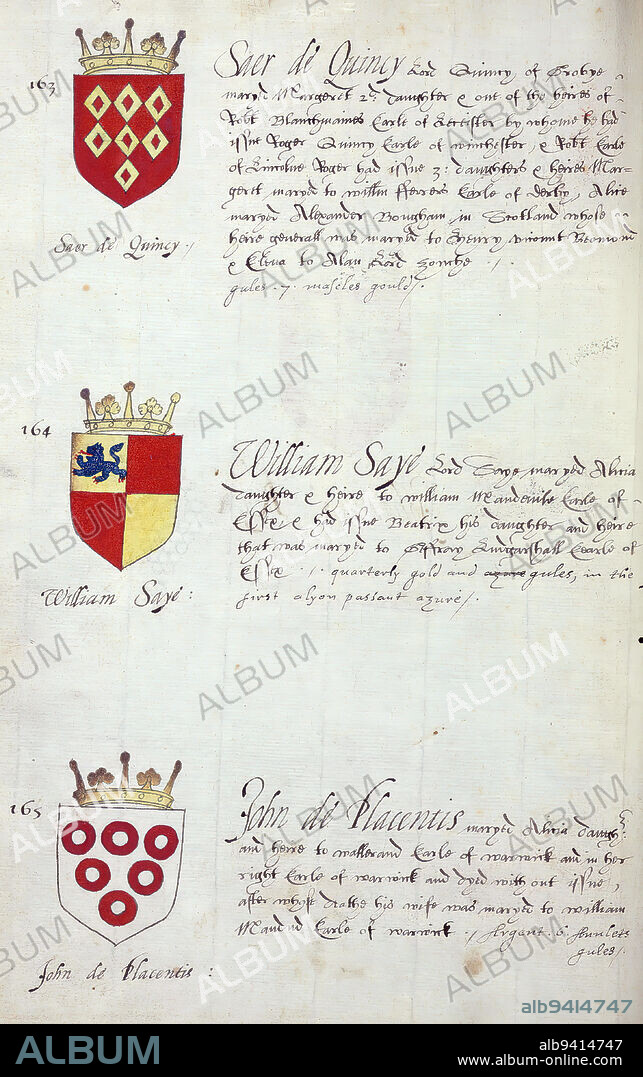 163
Saer de Quincy Lord Quincy of Grobye
maryed Margeret 2d daughter & one of the heires of
Robt Blanchmaines Earle of Leicester by whome he had
issue Roger Quincy Earle of winchester, & Robt Earle
of Lincolne Roger had issue 3: daughters & heires Mar=
gerett maryed to willm fferrers Earle of derby, Alice
maryed Alexander in Scotland whose
heire generall was maryed to Henry vicount Beamond
& Elena to Alan Lord zouche ./.
gules .7. mascles gould/.
Saer de Quincy ./
164
William Saye Lord Saye maryed Alicia
daughter & heire to william Mandevile Earle of
Essex & had issue Beatrix his daughter and heire
that was maryed to Geffrary Ludgarshall Earle of
Essex ./. quarterly gold and azure gules, in the
first a lyon passant azure/.
William Saye :
165
John de Placentis maryed Alicia daugh:
and heire to wallerand Earle of warwick and in her
right Earle of warwick and dyed without issue,
after whose deathe his wife was maryed to william
Earle of warwick ./ Argent .6.
gules/.
John de Placentis :
ALBUM
alb9414747
ALBUM
alb9414747
www.album-online.com